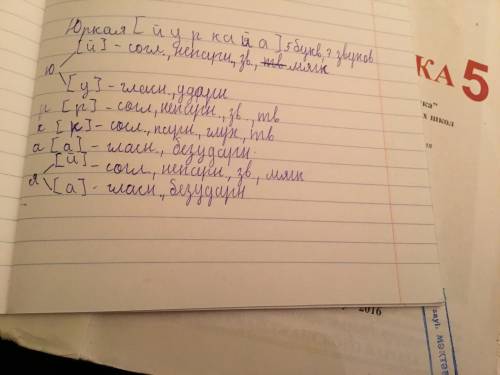 Юркая [й у р к а й а] 5 букв, 7 звуков
[й] - согл., непарн., зв., тв мягк
ю
[у] - гласн., ударн
р [р] - согл, непарн., зв., тв
к [к] - согл., парн, глух, тв
а [а] - гласн., безударн.
[й] - согл, непарн, зв, мягк
я
[а] - гласн, безударн
КА 5
ка"
х школ
2016
мектеп